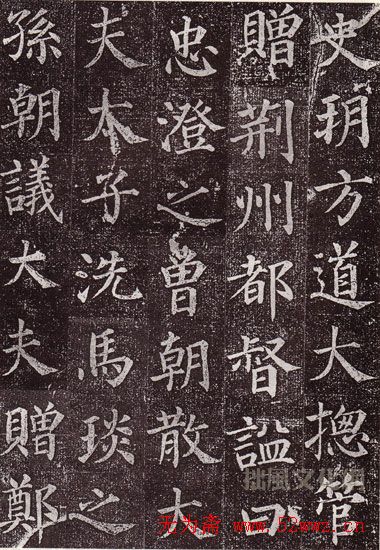 史朔方道大揔管
贈荆州都督謚曰
忠澄之曾朝散大
夫太子洗馬琰之
孫朝議大夫贈鄭
拙風文化网
无为斋 www.52wwz.cn